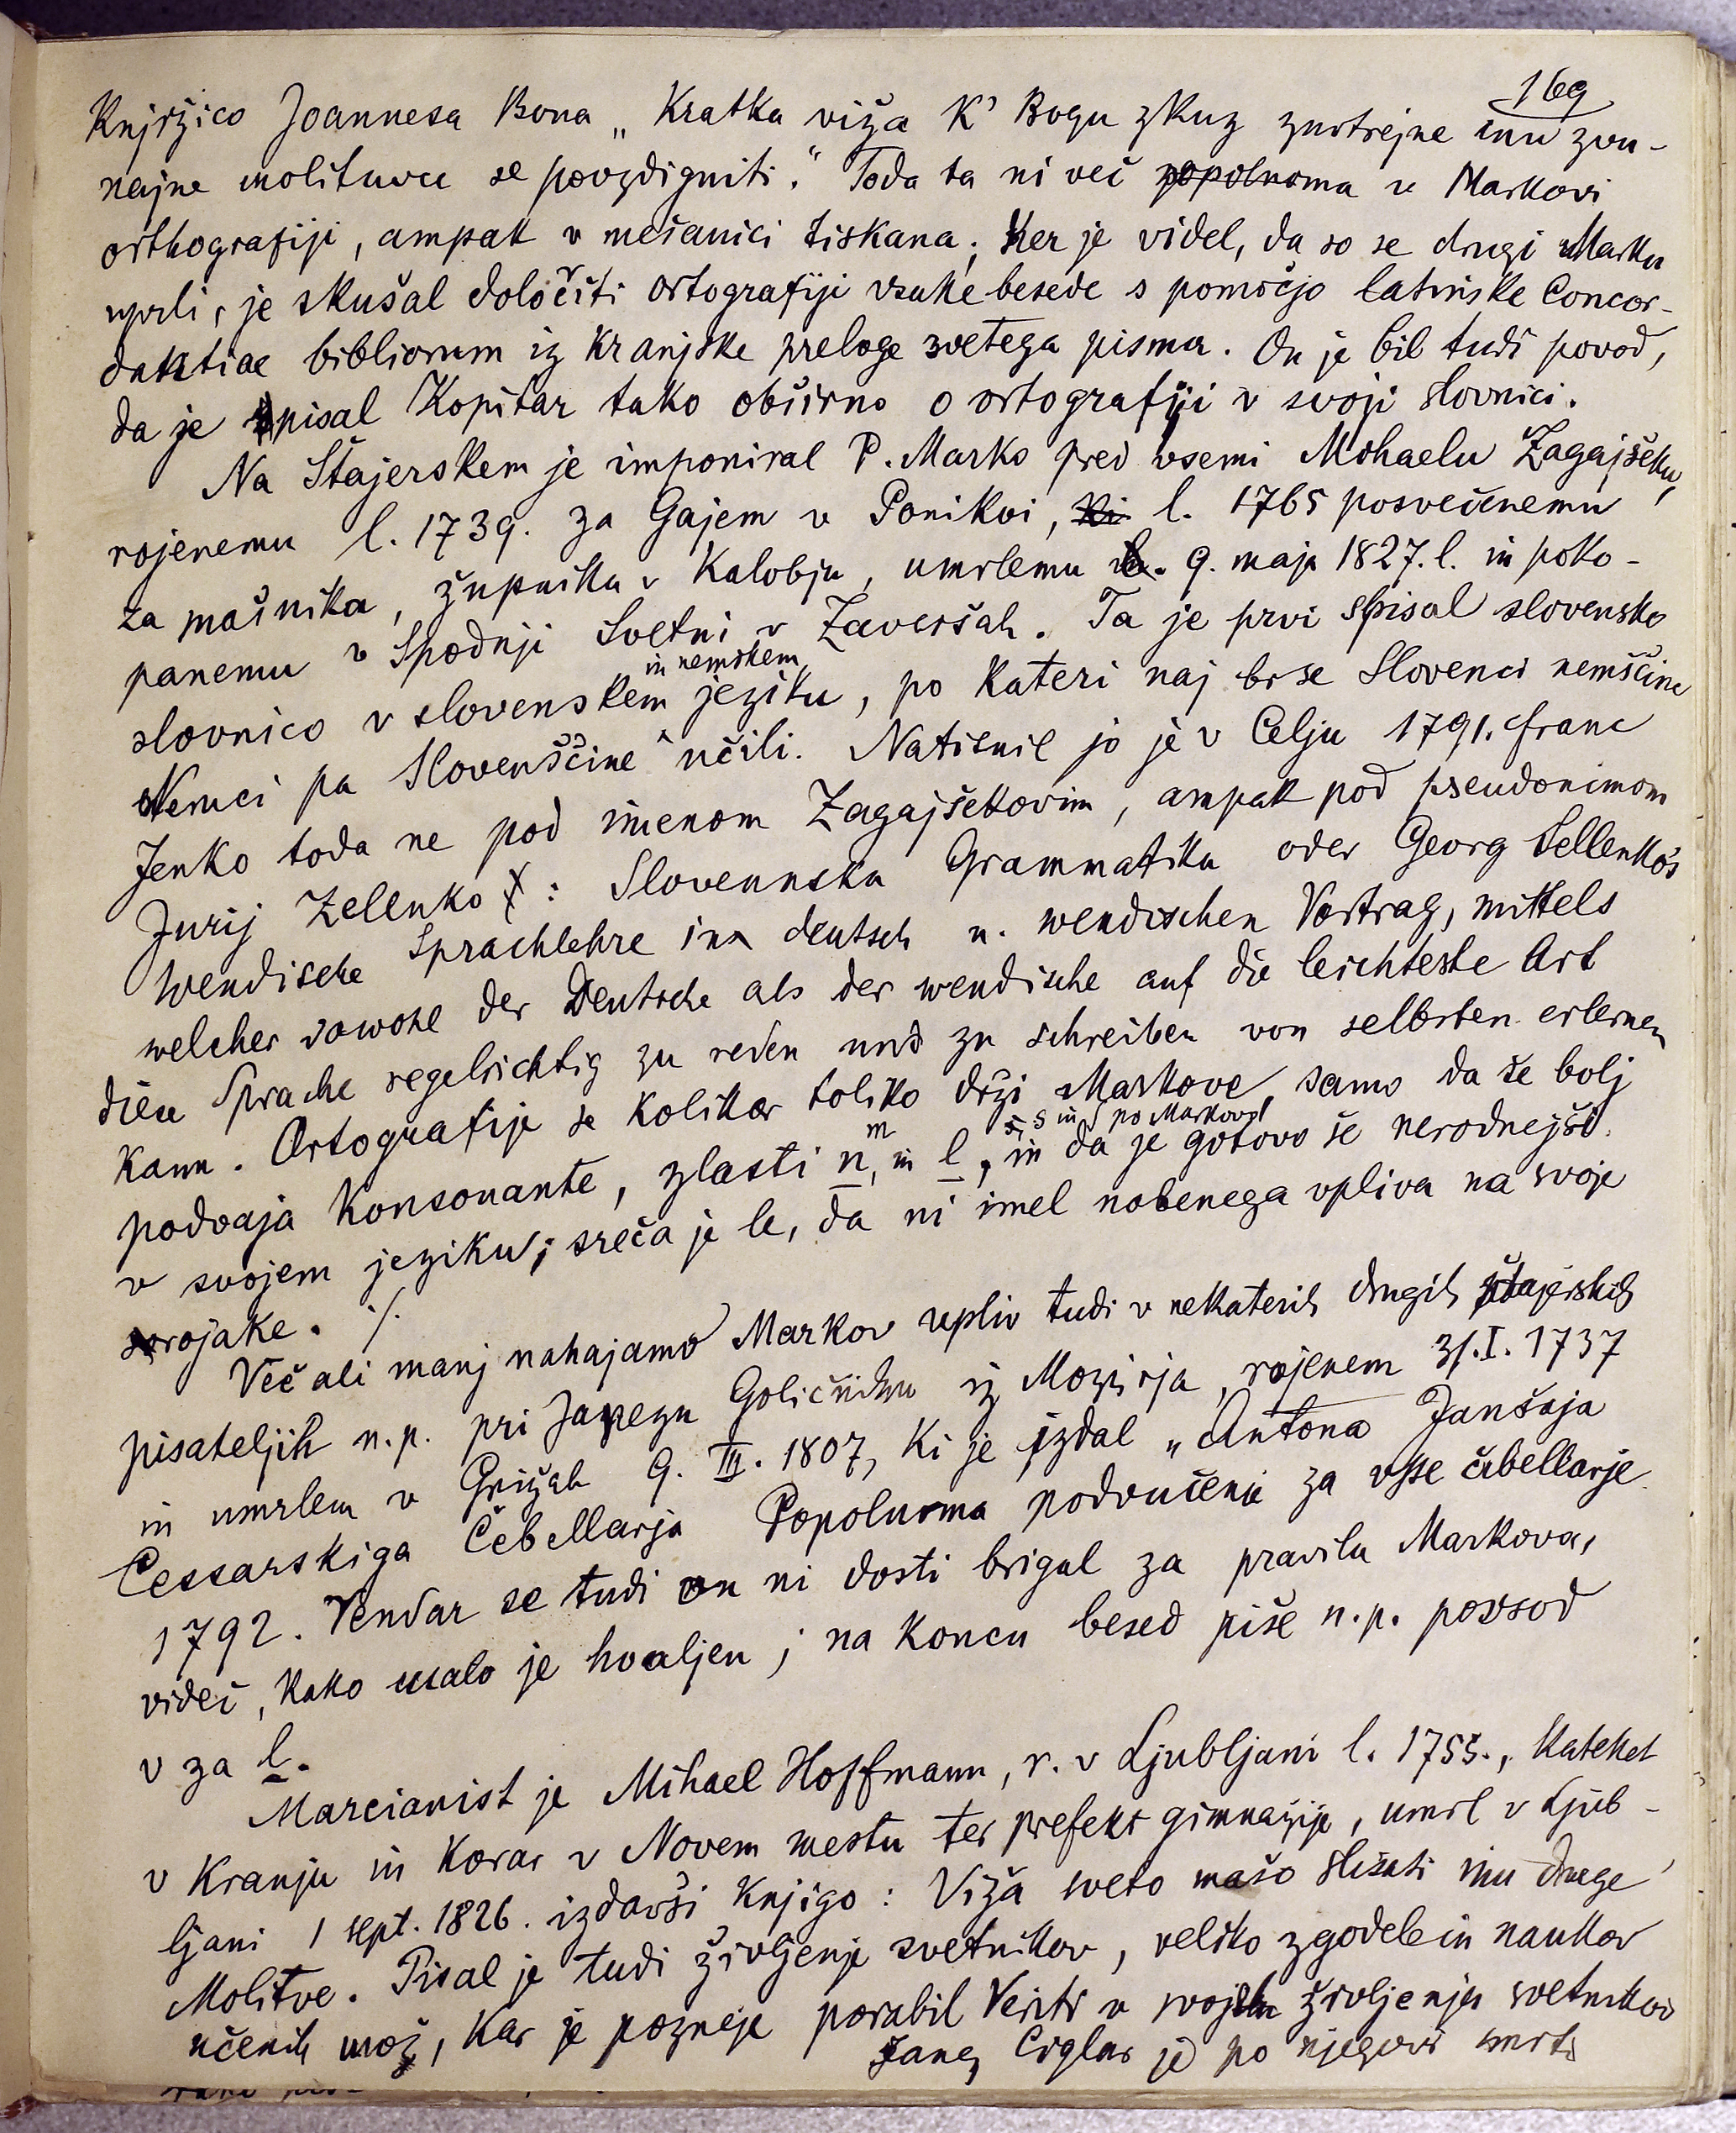 169
Knjižico Joannesa Bona „Kratka viža k' Bogu zkuz znotrejne inu zvu-
najne molituvce se povzdigniti." Toda ta ni več popolnoma v Markovi
orthografiji, ampak v mešanici tiskana. Ker je videl, da so se drugi Marku
uprli, je skušal določiti ortografiji vsake besede s pomočjo latinske Concor-
dantiae bibliorum iz kranjske preloge svetega pisma. On je bil tudi povod,
da je pisal Kopitar tako obširno o ortografiji v svoji slovnici.
Na Štajerskem je imponiral P. Marko pred vsemi Mihaelu Zagajšeku,
rojenemu l. 1739. za Gajem v Ponikvi, ki l. 1765 posvečenemu
za mašnika, župniku v Kalobju, umrlemu 9. maja 1827. l. in poko-
panemu v Spodnji Svetni v Zaveršah. Ta je prvi spisal slovensko
in nemškem
slovnico v slovenskem jeziku, po kateri naj bi se Slovenci nemščine
Nemci pa Slovenščine učili. Natisnil jo je v Celju 1791. Franc
Jenko toda ne pod imenom Zagajšekovim, ampak pod pseudonimom
Jurij Zelenko: Slovennska Grammatika oder Georg Sellenko's
wendische Sprachlehre in deutsch u. wendischen Vortrag, mittels
welcher sowohl der Deutsche als der wendische auf die leichteste Art
diese Sprache regelrichtig zu reden und zu schreiben von selbsten erlernen
kann. Ortografije se kolikor toliko drži Markove, samo da še bolj
m s in ſ po Markovo
podvaja konsonante, zlasti n, in l, in da je gotovo še nerodnejši
v svojem jeziku; sreča je le, da ni imel nobenega vpliva na svoje
rojake. ·/.
Več ali manj nahajamo Markov vpliv tudi v nekaterih drugih štajerskih
pisateljih n. p. pri Janezu Goličniku iz Mozirja, rojenem 31. I. 1737
in umrlem v Grižah 9. III. 1807, ki je izdal „Antona Janšaja
Cessarskiga Čebellarja Popolnoma podvučenje za vsse čebellarje
1792. Vendar se tudi on ni dosti brigal za pravila Markova,
videč, kako malo je hvaljen; na koncu besed piše n. p. povsod
v za l.
Marcianist je Mihael Hoffmann, r. v Ljubljani l. 1755., Katehet
v Kranju in Korar v Novem mestu ter prefekt gimnazije, umrl v Ljub-
ljani 1 sept. 1826. izdavši Knjigo: Viža sveto mašo slišati inu druge
Molitve. Pisal je tudi življenje svetnikov, veliko zgodeb in naukov
učenih mož, kar je pozneje porabil Veriti v življenju svetnikov
Janez Ciglar je po njegovi smrti